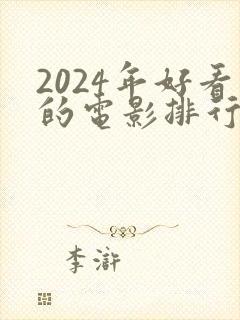 2024年好看
的电影排行
李滸